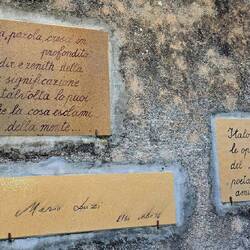 , parola, cresci in
profondità
dir e zenith della
significazione
talvolta lo puoi
che la cosa esclami
della mente...
Mario Luzi
Italo
le op
del
poeta
ami